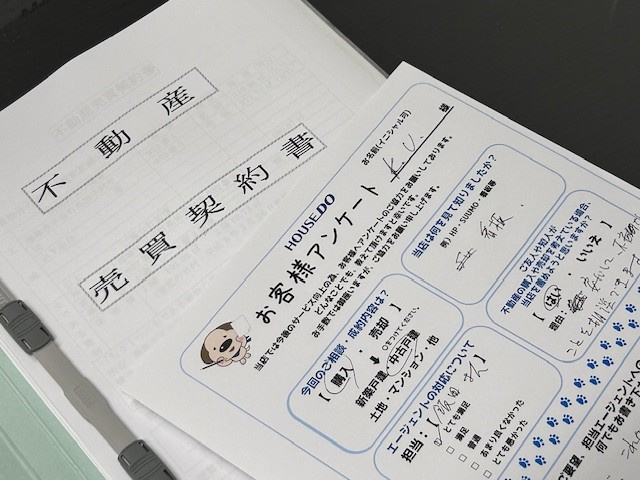 不動産
売買契約書
HOUSE DO
お客様アンケート
お名前(イニシャル可) K.U. 様
当店では今後のサービス向上の為、お客様へアンケートのご協力をお願いしております。
どんなことでも、教えて頂けますと幸いです。
お手数では御座いますが、ご協力をお願い申し上げます。
今回のご相談・成約内容は?
【 購入 ・ 売却 】
○をつけてください。
新築戸建・中古戸建
土地・マンション・他
当店は何を見て知りましたか?
例) HP・SUUMO・看板等
看板
エージェントの対応について
担当:【 飯田 さん 】
□ とても満足
□ 満足
□ 普通
□ あまり良くなかった
□ とても悪かった
ご友人や知人が
不動産の購入や売却を考えている場合、
当店を薦めようと思いますか?
【 はい ・ いいえ 】
理由:
ことを担当
ご要望、担当エージェントへ
何でもお書き下